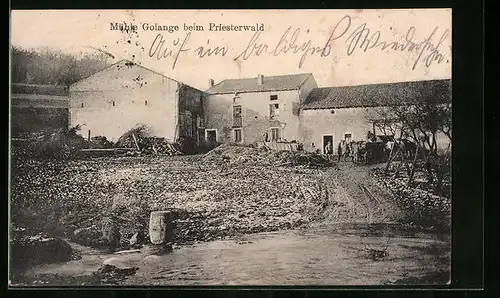 Mühle Golange beim Priesterwald
Auf ein baldiges Wiedersehn